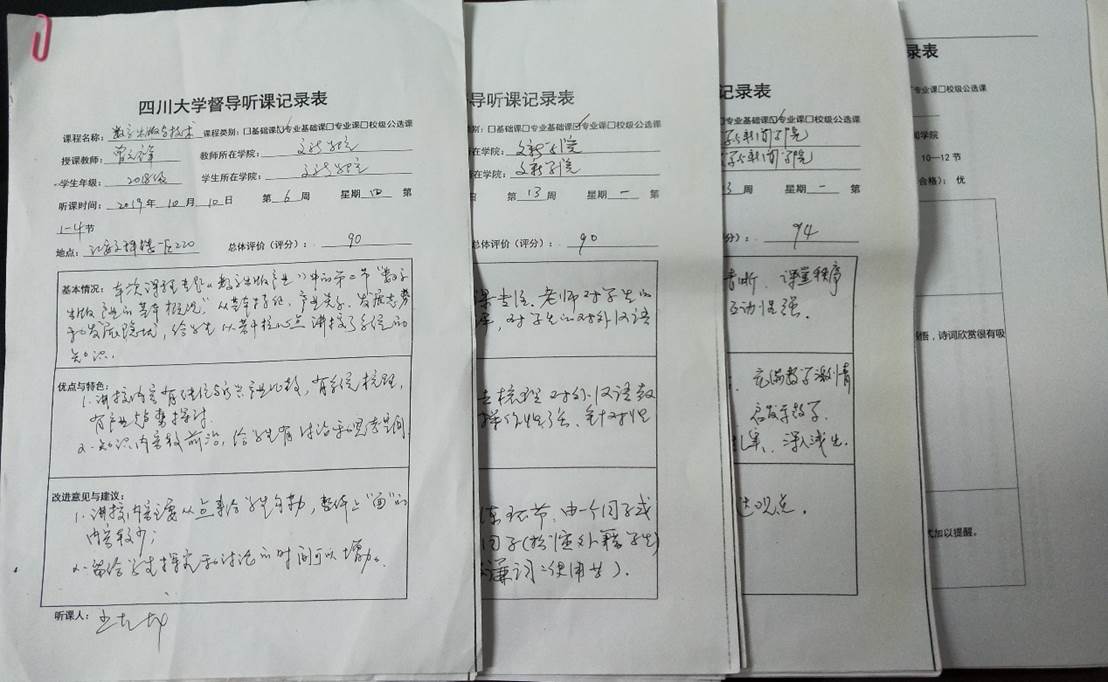 四川大学督导听课记录表
课程名称： 数字出版与技术 课程类别：□基础课☑专业基础课□专业课□校级公选课
授课教师： 教师所在学院： 文新学院
学生年级： 2018级 学生所在学院： 文新学院
听课时间： 2019 年 10 月 10 日 第 6 周 星期 四 第
1-4 节
地点： 江安文科楼一区220 总体评价（评分）： 90
基本情况： 本次课程专题“数字出版产业”中的第二节“数字
出版产业的基本概况”从基本特征、产业
发展现状，给学生以若干核心点讲授了系统的
知识。
优点与特色：
1. 讲授内容有传统与产业比较，有系统梳理，
有产业趋势探讨。
2. 知识内容较前沿，给学生有讨论和思考空间
改进意见与建议：
1. 讲授内容主要从点来给学生勾勒，整体上“面”的
内容较少；
2. 留给学生探究和讨论的时间可以增加。
听课人：
导听课记录表
别：□基础课□专业基础课☑专业课□校级公选课
在学院： 文新学院
在学院： 文新学院
日 第 13 周 星期 一 第
总体评价（评分）： 90
课专注、老师对学生的
对学生的对外汉语
梳理对外汉语教
操作性强、针对性
环节，由一个同学或
同学(扮演外籍学生)
谦词的使用等)。
记录表
专业基础课□专业课□校级公选课
学与新闻学院
学与新闻学院
3 周 星期 一 第
分）： 94
清晰、课堂秩序
互动性强。
充满教学激情
启发式教学。
深入浅出。
达观点。
录表
专业课□校级公选课
闻学院
10—12 节
合格）： 优
悟，诗词欣赏很有吸
式加以提醒。